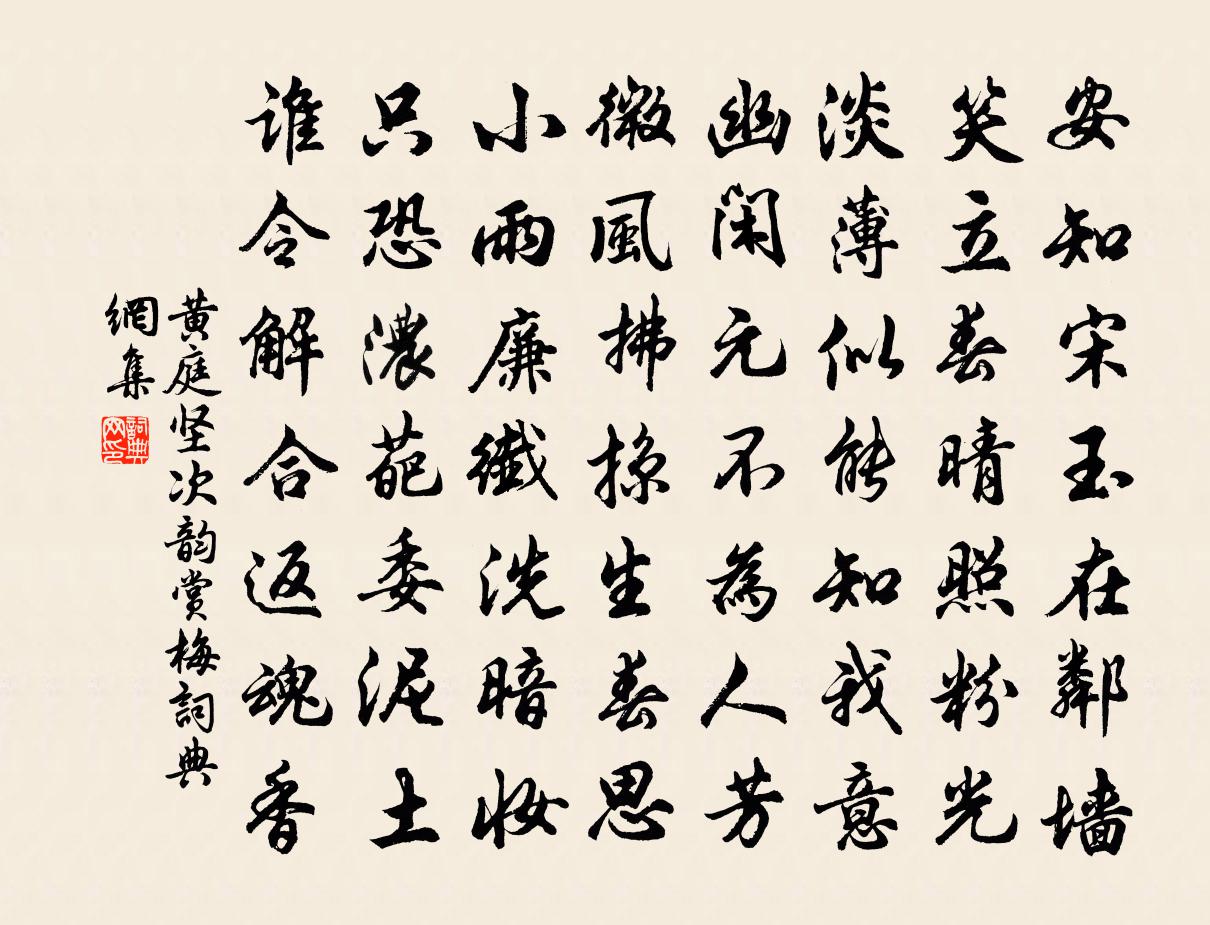 安知宋玉在鄰墙
笑立春晴照粉光
淡薄似能知我意
幽閑元不為人芳
微風拂掠生春思
小雨廉纖洗暗妆
只恐濃葩委泥土
谁令解合返魂香
黄庭坚次韵赏梅詞典
網集
詞典网印